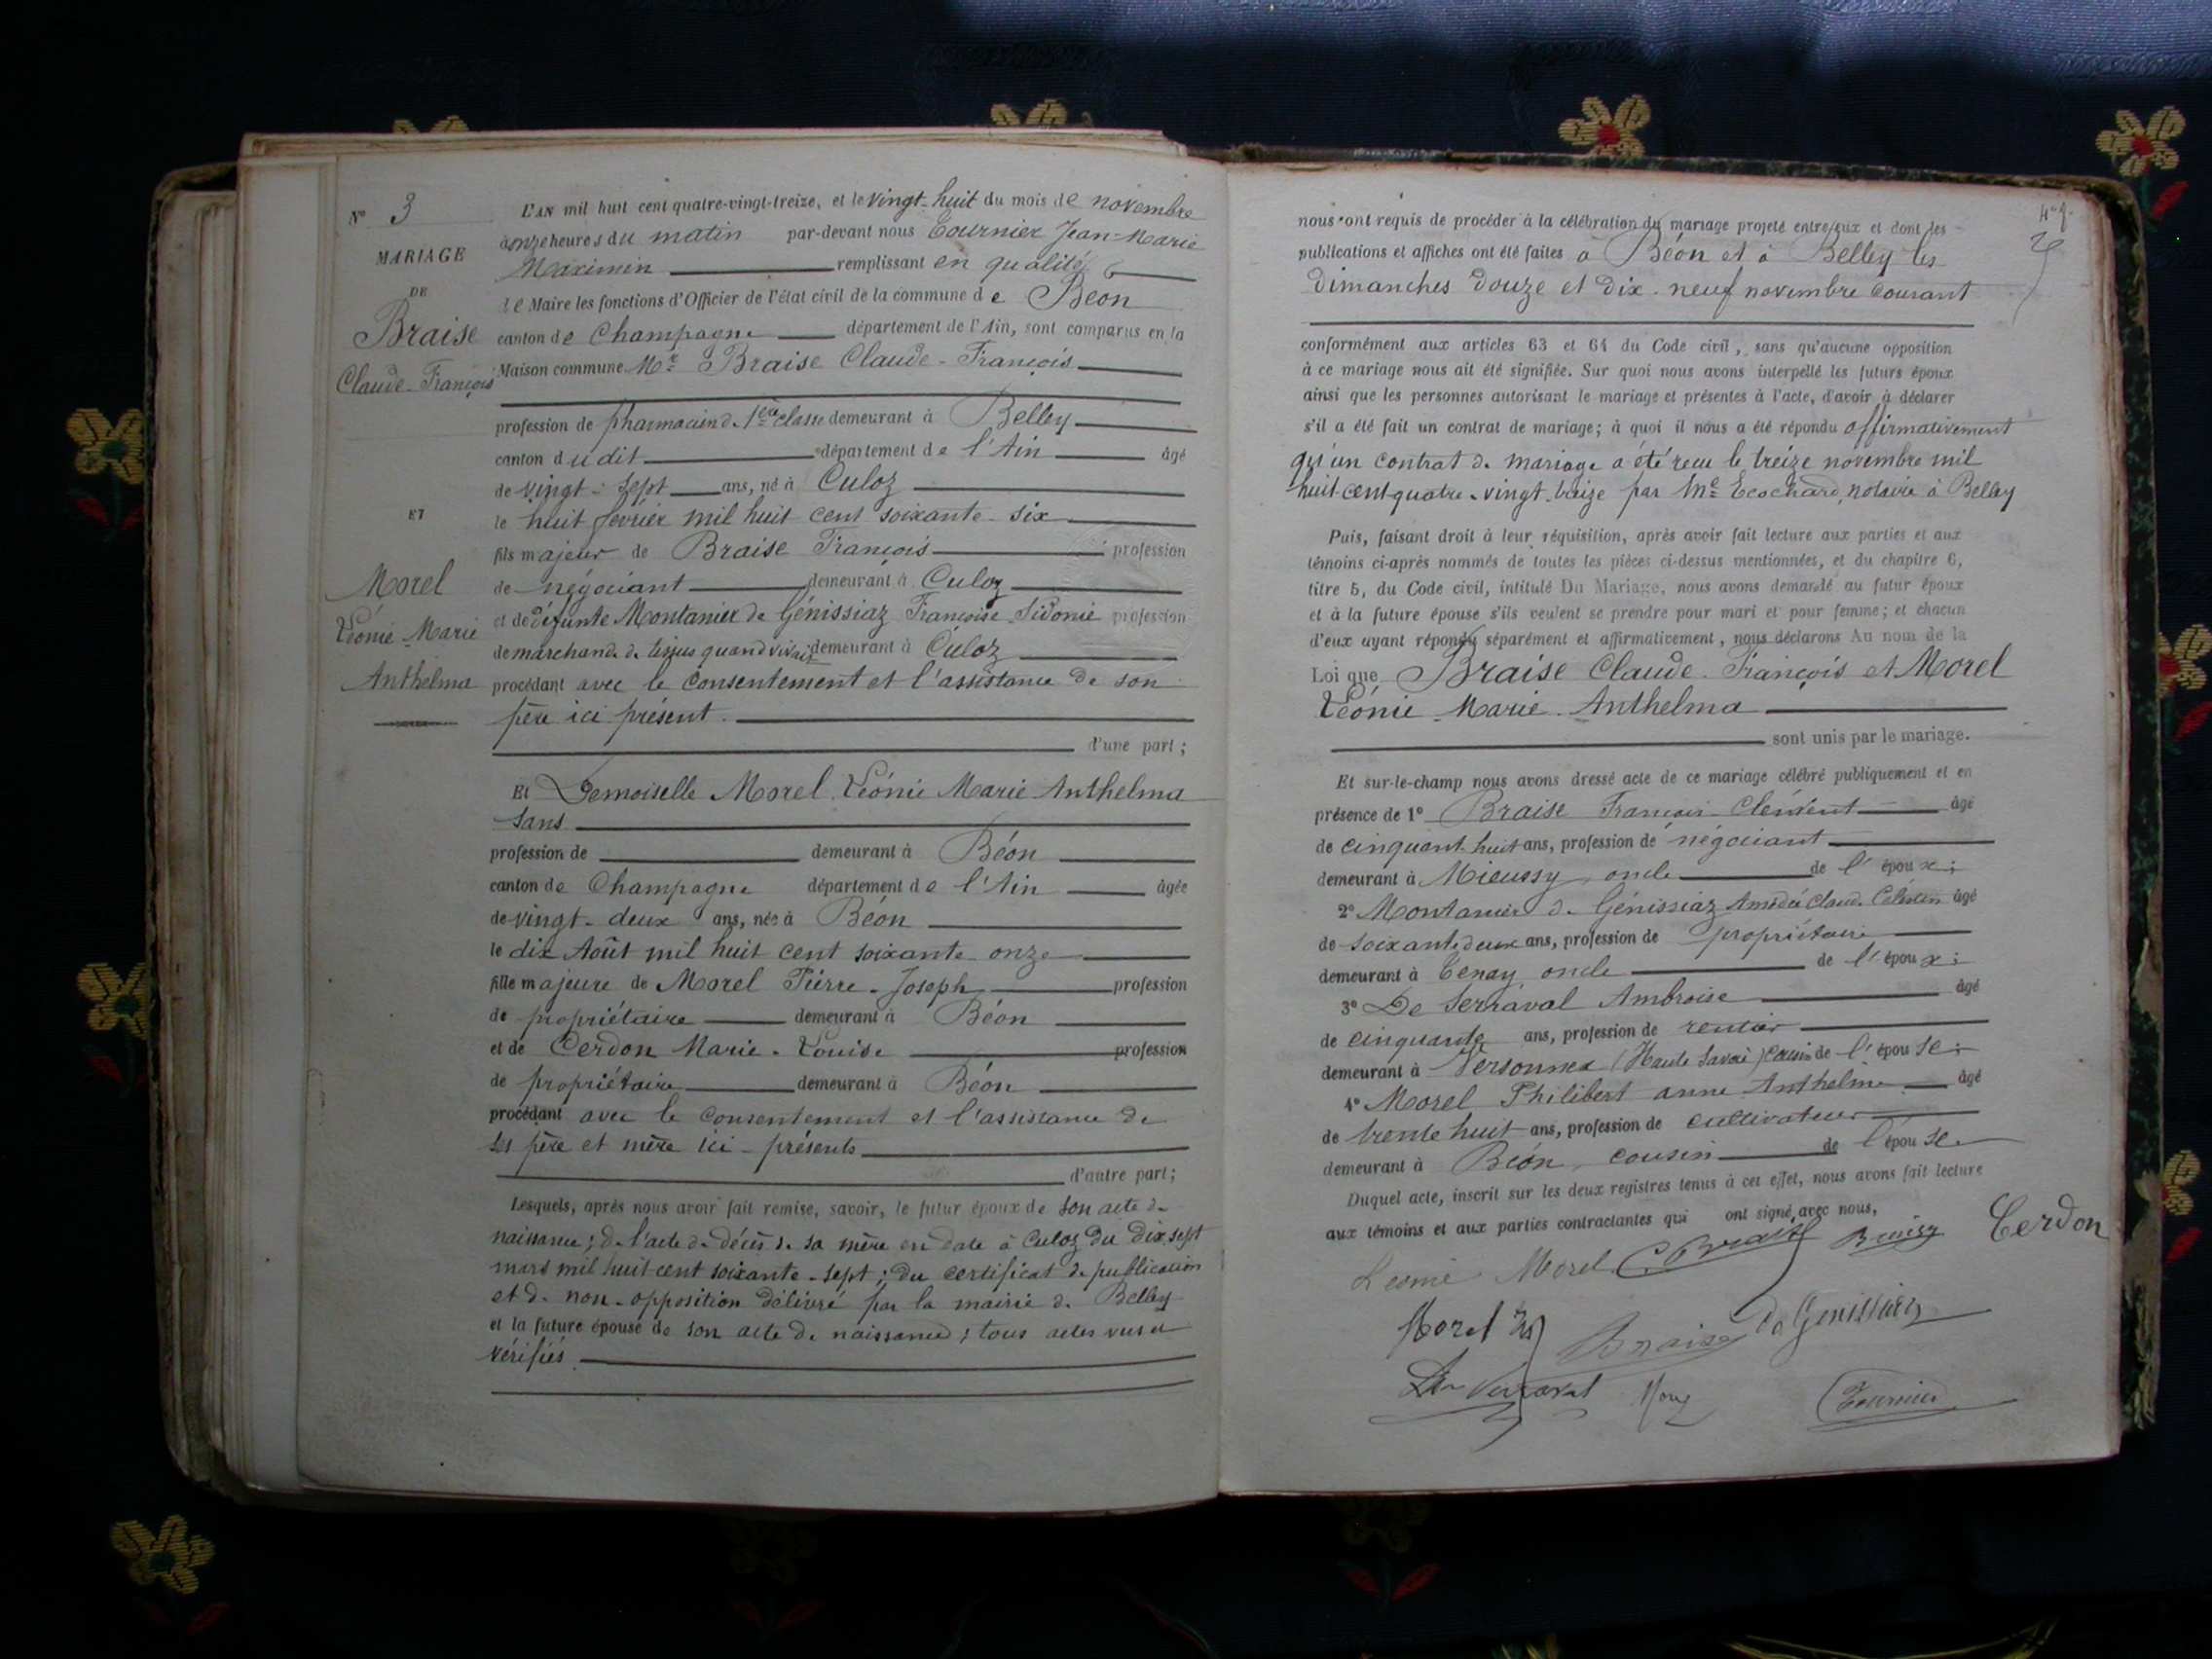 N° 3
MARIAGE
DE
Braise
Claude-François
ET
Morel
Léonie Marie
Anthelma
L'AN mil huit cent quatre-vingt-treize, et le vingt-huit du mois de novembre
à onze heures du matin par-devant nous Tournier Jean-Marie
Maximin remplissant en qualité
de Maire les fonctions d'Officier de l'état civil de la commune de Béon
canton de Champagne département de l'Ain, sont comparus en la
Maison commune Mr Braise Claude-François
profession de pharmacien de 1ère classe demeurant à Belley
canton dudit département de l'Ain âgé
de vingt-sept ans, né à Culoz
le huit février mil huit cent soixante-six
fils majeur de Braise François profession
de négociant demeurant à Culoz
et de défunte Montanier de Génissiaz Françoise Sidonie profession
de marchande de tissus quand vivait demeurant à Culoz
procédant avec le consentement et l'assistance de son
père ici présent.
d'une part;
Et Demoiselle Morel Léonie Marie Anthelma
sans
profession de demeurant à Béon
canton de Champagne département de l'Ain âgée
de vingt-deux ans, née à Béon
le dix Août mil huit cent soixante onze
fille majeure de Morel Pierre-Joseph profession
de propriétaire demeurant à Béon
et de Cerdon Marie-Louise profession
de propriétaire demeurant à Béon
procédant avec le consentement et l'assistance de
ses père et mère ici-présents
d'autre part;
Lesquels, après nous avoir fait remise, savoir, le futur époux de son acte de
naissance; de l'acte de décès de sa mère en date à Culoz du dix sept
mars mil huit cent soixante-sept; du certificat de publication
et de non-opposition délivré par la mairie de Belley
et la future épouse de son acte de naissance; tous actes vus et
vérifiés
nous ont requis de procéder à la célébration du mariage projeté entre eux et dont les
publications et affiches ont été faites à Béon et à Belley les
dimanches douze et dix-neuf novembre courant
conformément aux articles 63 et 64 du Code civil, sans qu'aucune opposition
à ce mariage nous ait été signifiée. Sur quoi nous avons interpellé les futurs époux
ainsi que les personnes autorisant le mariage et présentes à l'acte, d'avoir à déclarer
s'il a été fait un contrat de mariage; à quoi il nous a été répondu affirmativement
qu'un contrat de mariage a été reçu le treize novembre mil
huit cent quatre-vingt-treize par Me Ecochard, notaire à Belley
Puis, faisant droit à leur réquisition, après avoir fait lecture aux parties et aux
témoins ci-après nommés de toutes les pièces ci-dessus mentionnées, et du chapitre 6,
titre 5, du Code civil, intitulé Du Mariage, nous avons demandé au futur époux
et à la future épouse s'ils veulent se prendre pour mari et pour femme; et chacun
d'eux ayant répondu séparément et affirmativement, nous déclarons Au nom de la
Loi que Braise Claude-François et Morel
Léonie-Marie-Anthelma
sont unis par le mariage.
Et sur-le-champ nous avons dressé acte de ce mariage célébré publiquement et en
présence de 1° Braise François-Clément âgé
de cinquant huit ans, profession de négociant
demeurant à Mieussy, oncle de l'époux;
2° Montanier de Génissiaz Amédée Claude Célestin âgé
de soixante deux ans, profession de propriétaire
demeurant à Tenay oncle de l'époux;
3° De Serraval Ambroise âgé
de cinquante ans, profession de rentier
demeurant à Versonnex (Haute Savoie) cousin de l'épouse;
4° Morel Philibert anne Anthelme âgé
de trente huit ans, profession de cultivateur
demeurant à Béon, cousin de l'épouse.
Duquel acte, inscrit sur les deux registres tenus à cet effet, nous avons fait lecture
aux témoins et aux parties contractantes qui ont signé avec nous,
Léonie Morel C. Braise Braise Cerdon
Morel Braise de Génissiaz
De Serraval Tournier